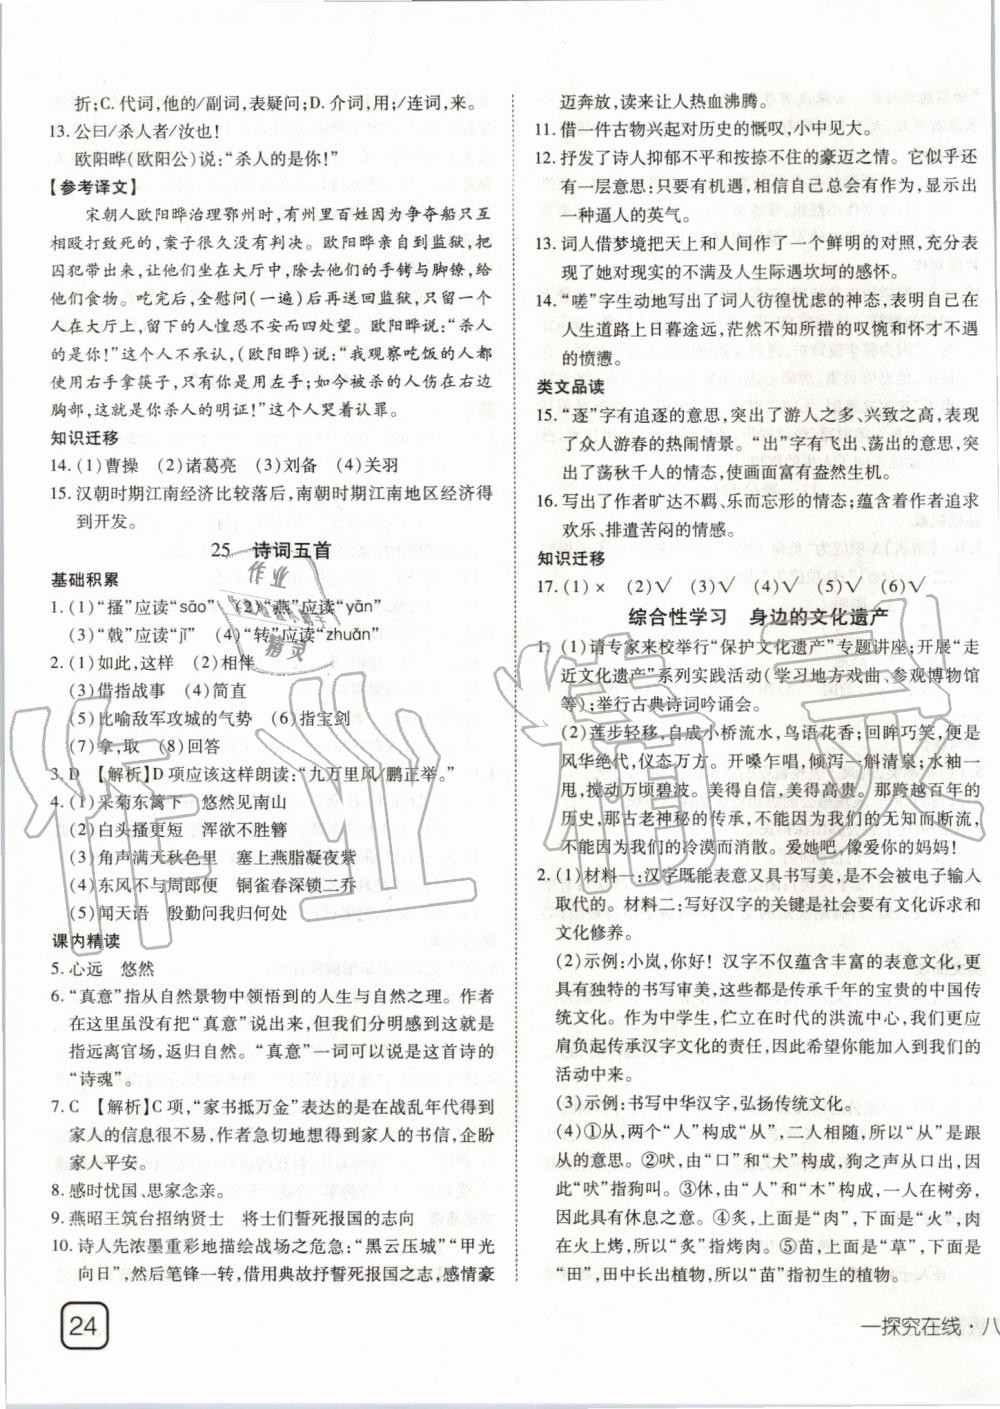 折;C. 代词,他的/副词,表疑问;D. 介词,用;/连词,来。
13. 公曰/杀人者/汝也!
欧阳晔(欧阳公)说:“杀人的是你!”
【参考译文】
宋朝人欧阳晔治理鄂州时,有州里百姓因为争夺船只互
相殴打致死的,案子很久没有判决。欧阳晔亲自到监狱,把
囚犯带出来,让他们坐在大厅中,除去他们的手铐与脚镣,给
他们食物。吃完后,全慰问(一遍)后再送回监狱,只留一个
人在大厅上,留下的人惶恐不安而四处望。欧阳晔说:“杀人
的是你!”这个人不承认,(欧阳晔)说:“我观察吃饭的人都
使用右手拿筷子,只有你是用左手;如今被杀的人伤在右边
胸部,这就是你杀人的明证!”这个人哭着认罪。
知识迁移
14. (1)曹操 (2)诸葛亮 (3)刘备 (4)关羽
15. 汉朝时期江南经济比较落后,南朝时期江南地区经济得
到开发。
25 诗词五首
基础积累
1. (1)“搔”应读“sāo” (2)“燕”应读“yān”
(3)“戟”应读“jǐ” (4)“转”应读“zhuǎn”
2. (1)如此,这样 (2)相伴
(3)借指战事 (4)简直
(5)比喻敌军攻城的气势 (6)指宝剑
(7)拿,取 (8)回答
3. D 【解析】D 项应该这样朗读:“九万里风/鹏正举。”
4. (1)采菊东篱下 悠然见南山
(2)白头搔更短 浑欲不胜簪
(3)角声满天秋色里 塞上燕脂凝夜紫
(4)东风不与周郎便 铜雀春深锁二乔
(5)闻天语 殷勤问我归何处
课内精读
5. 心远 悠然
6. “真意”指从自然景物中领悟到的人生与自然之理。作者
在这里虽没有把“真意”说出来,但我们分明感到这就是
指远离官场,返归自然。“真意”一词可以说是这首诗的
“诗魂”。
7. C 【解析】C 项,“家书抵万金”表达的是在战乱年代得到
家人的信息很不易,作者急切地想得到家人的书信,企盼
家人平安。
8. 感时忧国、思家念亲。
9. 燕昭王筑台招纳贤士 将士们誓死报国的志向
10. 诗人先浓墨重彩地描绘战场之危急:“黑云压城”“甲光
向日”,然后笔锋一转,借用典故抒誓死报国之志,感情豪
24
迈奔放,读来让人热血沸腾。
11. 借一件古物兴起对历史的慨叹,小中见大。
12. 抒发了诗人抑郁不平和按捺不住的豪迈之情。它似乎还
有一层意思:只要有机遇,相信自己总会有作为,显示出
一种逼人的英气。
13. 词人借梦境把天上和人间作了一个鲜明的对照,充分表
现了她对现实的不满及人生际遇坎坷的感怀。
14. “嗟”字生动地写出了词人彷徨忧虑的神态,表明自己在
人生道路上日暮途远,茫然不知所措的叹惋和怀才不遇
的愤懑。
类文品读
15. “逐”字有追逐的意思,突出了游人之多、兴致之高,表现
了众人游春的热闹情景。“出”字有飞出、荡出的意思,突
出了荡秋千人的情态,使画面富有盎然生机。
16. 写出了作者旷达不羁、乐而忘形的情态;蕴含着作者追求
欢乐、排遣苦闷的情感。
知识迁移
17. (1)× (2)√ (3)√ (4)√ (5)√ (6)√
综合性学习 身边的文化遗产
1. (1)请专家来校举行“保护文化遗产”专题讲座;开展“走
近文化遗产”系列实践活动(学习地方戏曲、参观博物馆
等);举行古典诗词吟诵会。
(2)莲步轻移,自成小桥流水,鸟语花香;回眸巧笑,便是
风华绝代,仪态万方。开嗓乍唱,倾泻一斛清泉;水袖一
甩,搅动万顷碧波。美得自信,美得高贵。那跨越百年的
历史,那古老神秘的传承,不能因为我们的无知而断流,
不能因为我们的冷漠而消散。爱她吧,像爱你的妈妈!
2. (1)材料一:汉字既能表意又具书写美,是不会被电子输入
取代的。材料二:写好汉字的关键是社会要有文化诉求和
文化修养。
(2)示例:小岚,你好! 汉字不仅蕴含丰富的表意文化,更
具有独特的书写审美,这些都是传承千年的宝贵的中国传
统文化。作为中学生,伫立在时代的洪流中心,我们更应
肩负起传承汉字文化的责任,因此希望你能加入到我们的
活动中来。
(3)示例:书写中华汉字,弘扬传统文化。
(4)①从,两个“人”构成“从”,二人相随,所以“从”是跟
从的意思。②吠,由“口”和“犬”构成,狗之声从口出,因
此“吠”指狗叫。③休,由“人”和“木”构成,一人在树旁,
因此具有休息之意。④炙,上面是“肉”,下面是“火”,肉
在火上烤,所以“炙”指烤肉。⑤苗,上面是“草”,下面是
“田”,田中长出植物,所以“苗”指初生的植物。
一探究在线·八
作业精灵